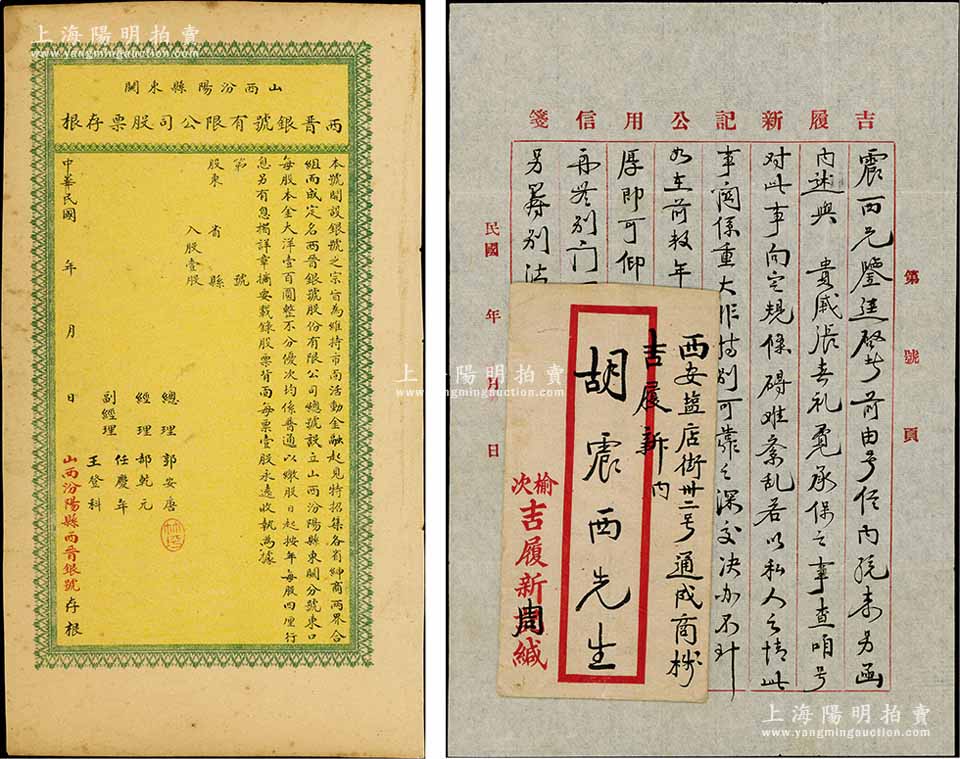 上海陽明拍賣
www.yangmingauction.com
山西汾陽縣東關
西晉銀號有限公司股票存根
本號開設銀號之宗旨為維持市面活動金融起見特招集各省紳商兩界合
組而成定名西晉銀號股份有限公司總號設立山西汾陽縣東關分號東口
每股本金大洋壹百圓整不分優次均係普通以繳股日起按年每股四厘行
息另有息摺詳章摘要載錄股票背面每票壹股永遠收執為據
第 號
股東 省 縣
入股壹股
總理 郭安唐
經理 郝乾元
任慶年
副經理 王登科
中華民國 年 月 日
山西汾陽縣西晉銀號存根
上海陽明拍賣
www.yangmingauction.com
吉履新記公用信箋
第 號 頁
震西兄鑒逕啓者前由号信內 另函
內述與 貴戚張春礼 承保之事查咱号
對此事向定規條碍难紊乱若以私人之情此
事関係重大非特別可靠之深交决加不
如在前数年
厚即可仰
再者別
另募別法
民國 年 月 日
西安盐店街卅二号通成商
吉履新內
胡震西先生
榆次吉履新周緘
上海陽明拍賣
www.yangmingauction.com